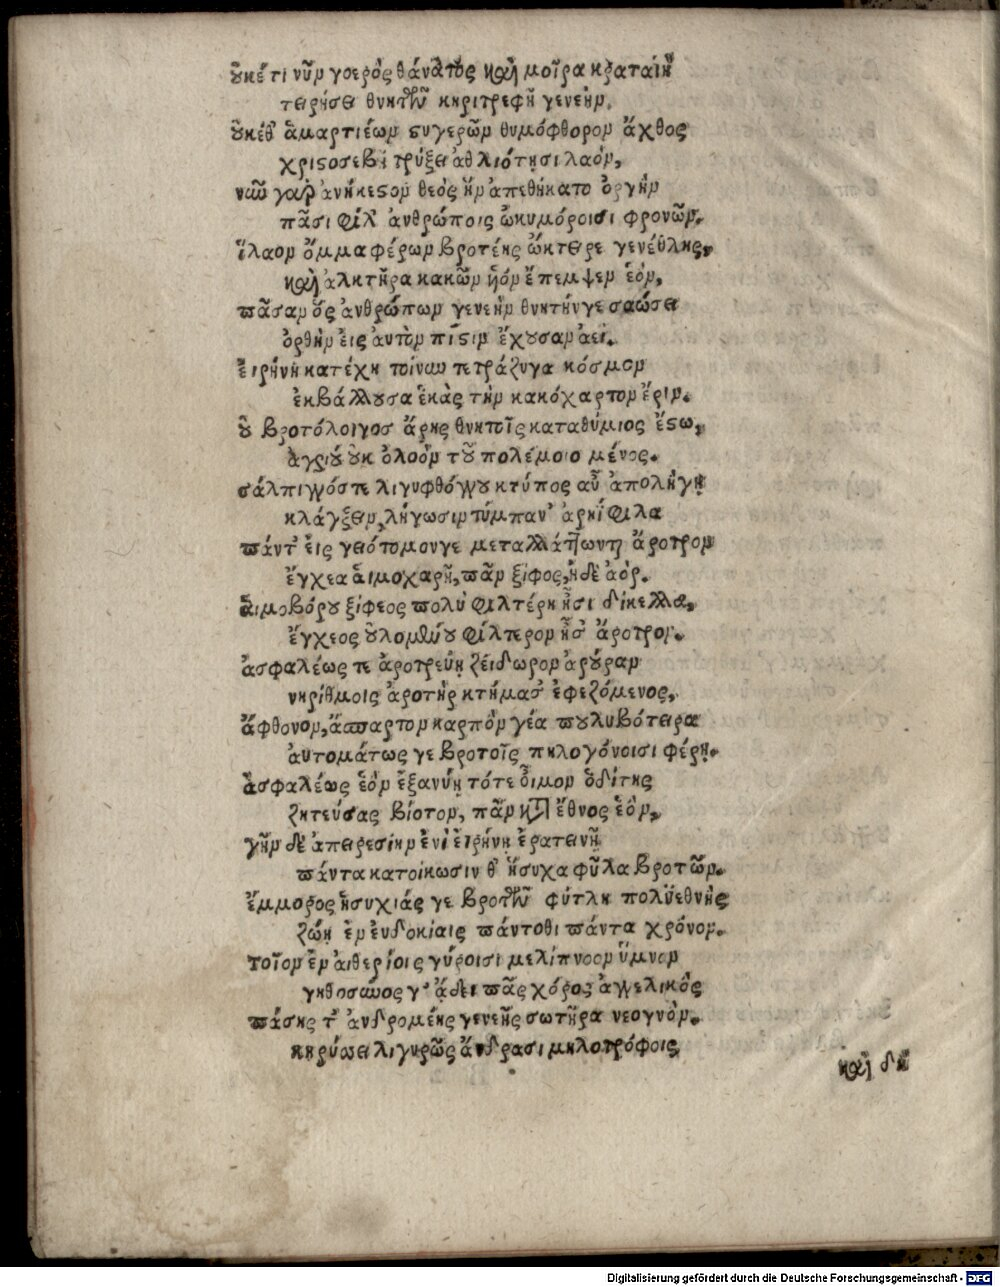 οὐκέτι νῦν γοερὸς θάνατος καὶ μοῖρα κραταιὴ
τειρήσει θνητῶν κηριτρεφῆ γενεήν.
οὐκέθ' ἁμαρτιέων στυγερῶν θυμόφθορον ἄχθος
χριστοσεβῆ τρύξει ἀθλιότησι λαόν,
νῦν γὰρ ἀνήκεστον θεὸς ἣν ἀπεθήκατο ὀργὴν
πᾶσι φίλ' ἀνθρώποις ὠκυμόροισι φρονῶν.
ἵλαον ὄμμα φέρων βροτέης ᾤκτειρε γενέθλης,
καὶ ἀλκτῆρα κακῶν ἧὸν ἔπεμψεν ἑὸν,
πᾶσαν ὃς ἀνθρώπων γενεὴν θνητήνγε σαώσει
ὀρθὴν εἰς αὐτὸν πίστιν ἔχουσαν ἀεί.
εἰρήνη κατέχη τοίνυν τετράζυγα κόσμον
ἐκβάλλουσα ἑκὰς τὴν κακόχαρτον ἔριν.
οὐ βροτόλοιγος ἄρης θνητοῖς καταθύμιος ἔστω,
ἀγριοῦ οὐκ ὀλοὸν τοῦ πολέμοιο μένος.
σάλπιγγόστε λιγυφθόγγου κτύπος αὖ ἀπολήγῃ
κλάγξειν, λήγωσιν τύμπαν' ἀρηΐφιλα
πάντ' εἰς γειότομονγε μεταλλάττωνται ἄροτρον
ἔγχεα αἱμοχαρῆ, πᾶν ξίφος, ἠδὲ ἀόρ.
αἱμοβόρου ξίφεος πολὺ φιλτέρη ᾖσι δίκελλα,
ἔγχεος οὐλομένου φίλτερον ᾖσ' ἄροτρον.
ἀσφαλέως τε ἀροτρεύῃ ζείδωρον ἀρούραν
νηρίθμοις ἀροτὴρ κτήμασ' ἐφεζόμενος,
ἄφθονον, ἄσπαρτον καρπὸν γέα πουλυβότειρα
αὐτομάτως γε βροτοῖς πηλογόνοισι φέρῃ.
ἀσφαλέως ἑὸν ἐξανύῃ τότε οἶμον ὁδίτης
ζητεύσας βίοτον, πᾶν κατ' ἔθνος ἑὸν,
γῆν δὲ ἀπειρεσίην ἐνὶ εἰρήνῃ ἐρατεινῇ
πάντα κατοίκωσιν θ' ἥσυχα φῦλα βροτῶν.
ἔμμορος ἡσυχιάς γε βροτῶν φύτλη πολυεθνής
ζώῃ ἐν ἐυδοκίαις πάντοθι πάντα χρόνον.
τοῖον ἐν αἰθερίοις γύροισι μελίπνοον ὕμνον
γηθοσύνος γ' ᾄδει πᾶς χόρος ἀγγελικὸς
πάσης τ' ἀνδρομέης γενεῆς σωτῆρα νεογνὸν.
κηρύσσει λιγυρῶς ἄνδρασι μηλοτρόφοις,
καὶ δὴ
Digitalisierung gefördert durch die Deutsche Forschungsgemeinschaft - DFG